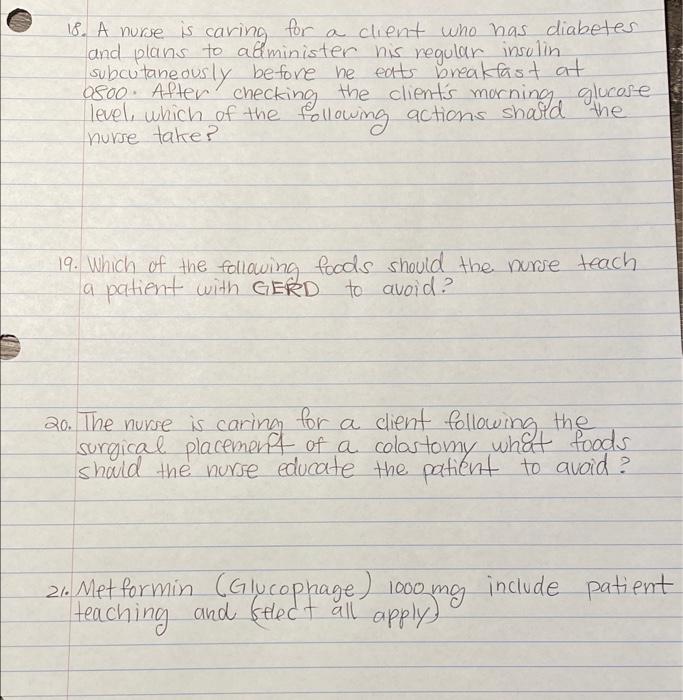 18. A nurse is caring for a client who has diabetes
and plans to administer his regular insulin
subcutaneously before he eats breakfast at
0800. After checking the client's morning glucose
level, which of the following actions should the
nurse take?
19. Which of the following foods should the nurse teach
a patient with GERD to avoid?
20. The nurse is caring for a client following the
surgical placement of a colostomy what foods
should the nurse educate the patient to avoid?
21. Metformin (Glucophage) 1000 mg include patient
teaching and select all apply)